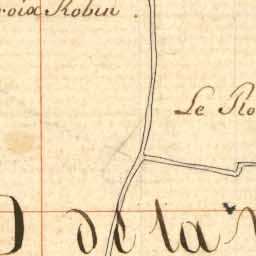 roix Robin.
Le Ro
de la